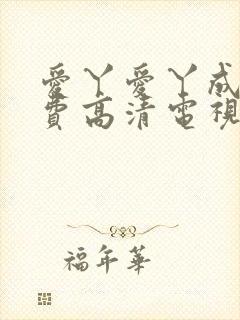 愛丫愛丫成
費高清電視
福年華